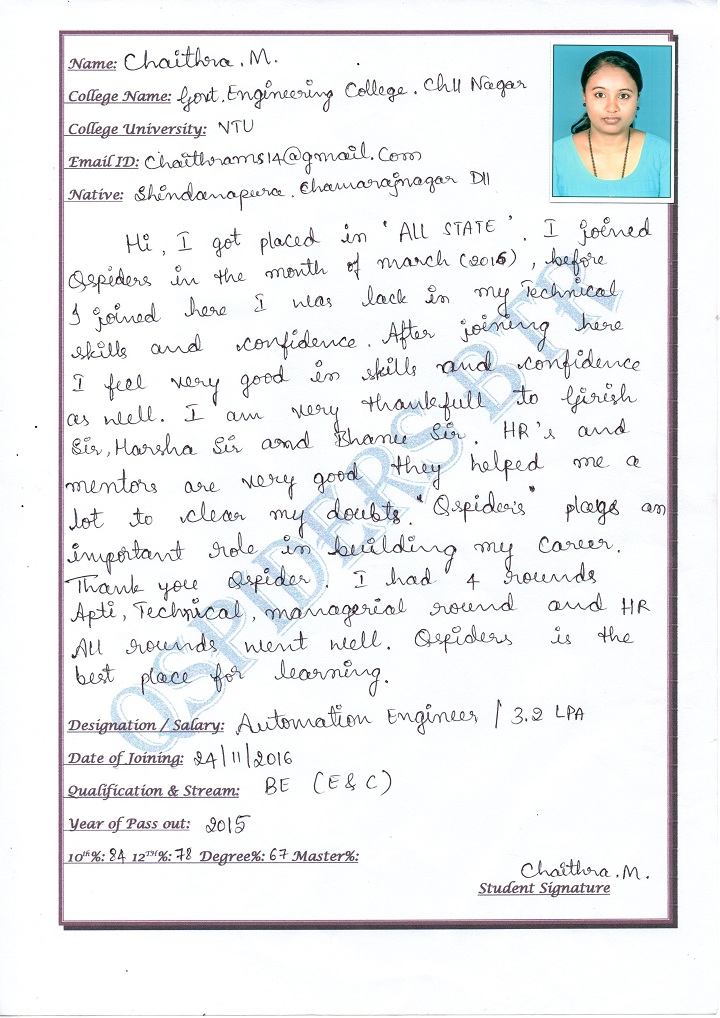 Name: Chaithra. M.
College Name: Govt. Engineering College. CHU Nagar
College University: VTU
Email ID: Chaithrams14@gmail.com
Native: Shindanapura. Chamarajnagar DII
Hi, I got placed in 'ALL STATE'. I joined
Qspiders in the month of march (2016), before
I joined here I was lack in my Technical
skills and confidence. After joining here
I feel very good in skills and confidence
as well. I am very thankfull to Girish
Sir, Harsha Sir and Bhanu Sir. HR's and
mentors are very good they helped me a
lot to clear my doubts. "Qspider's" plays an
important role in building my career.
Thank you Qspider. I had 4 rounds
Apti, Technical, managerial round and HR
All rounds went well. Qspiders is the
best place for learning.
QSPIDERS BTR
Designation / Salary: Automation Engineer / 3.2 LPA
Date of Joining: 24/11/2016
Qualification & Stream: BE (E & C)
Year of Pass out: 2015
10th%: 84 12TH%: 78 Degree%: 67 Master%:
Chaithra. M.
Student Signature